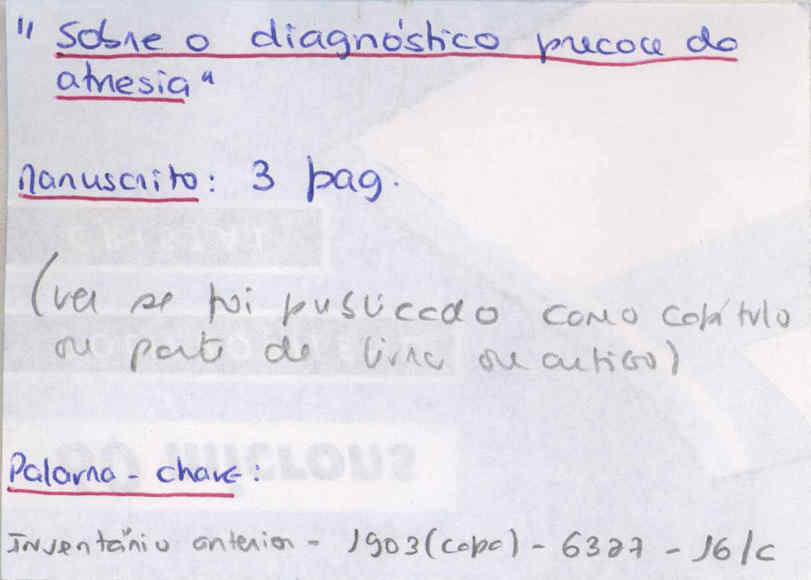 " Sobre o diagnóstico precoce do
atresia"
Manuscrito: 3 pag.
(ver se foi publicado como capítulo
ou parte de livro ou artigo)
Palavra - chave:
Inventário anterior - 1903 (capa) - 6327 - 16/c